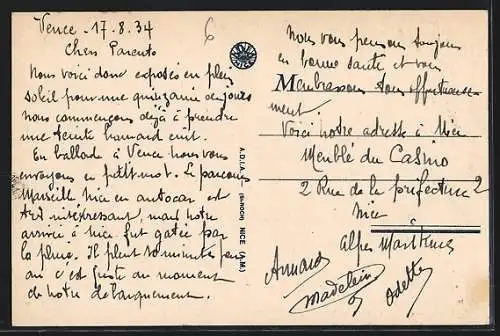 Vence 17.8.34
Chers Parents
Nous voici donc exposés en plein
soleil pour une quinzaine de jours
nous commençons déjà à prendre
une teinte homard cuit.
En ballade à Vence nous vous
envoyons un petit mot. Le parcours
Marseille Nice en autocar est
très intéressant, mais notre
arrivée à Nice fut gatée par
la pluie. Il pleut 10 minutes par
an c'est juste au moment
de notre débarquement.
6
A.D.I.A.
NICE (A.M.)
Nous vous pensons toujours
en bonne santé et vous
embrassons tous affectueuse-
ment.
Voici notre adresse à Nice
Meublé du Casino
2 Rue de la préfecture 2
Nice
Alpes Maritimes
Armand
Madeleine
Odette